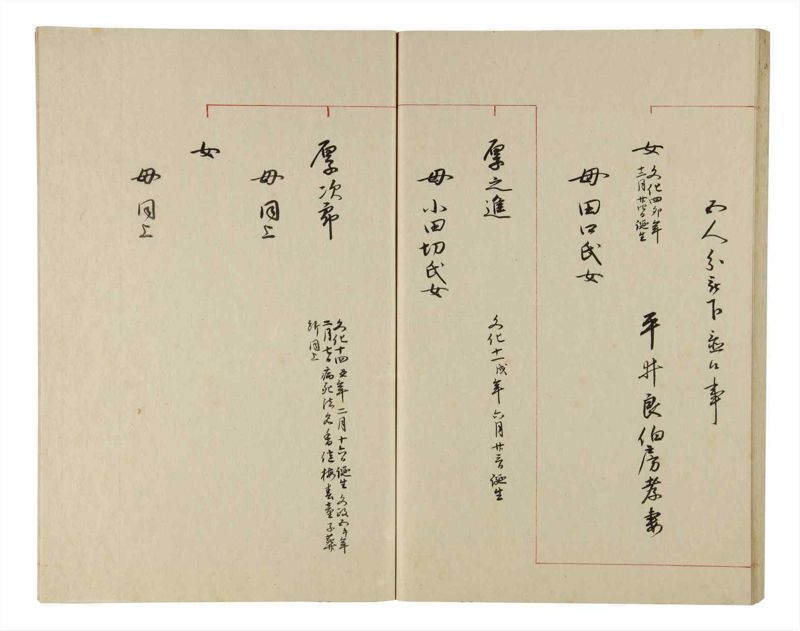 女
文化四卯年
十二月廿四日誕生
平井良伯房孝妻
母田口氏女
厚之進
文化十一戌年六月廿三日誕生
母小田切氏女
厚次郎
文化十四丑年二月十六日誕生文政五午年
病死法名香佳梅春童子葬
所同上
母同上
女
母同上